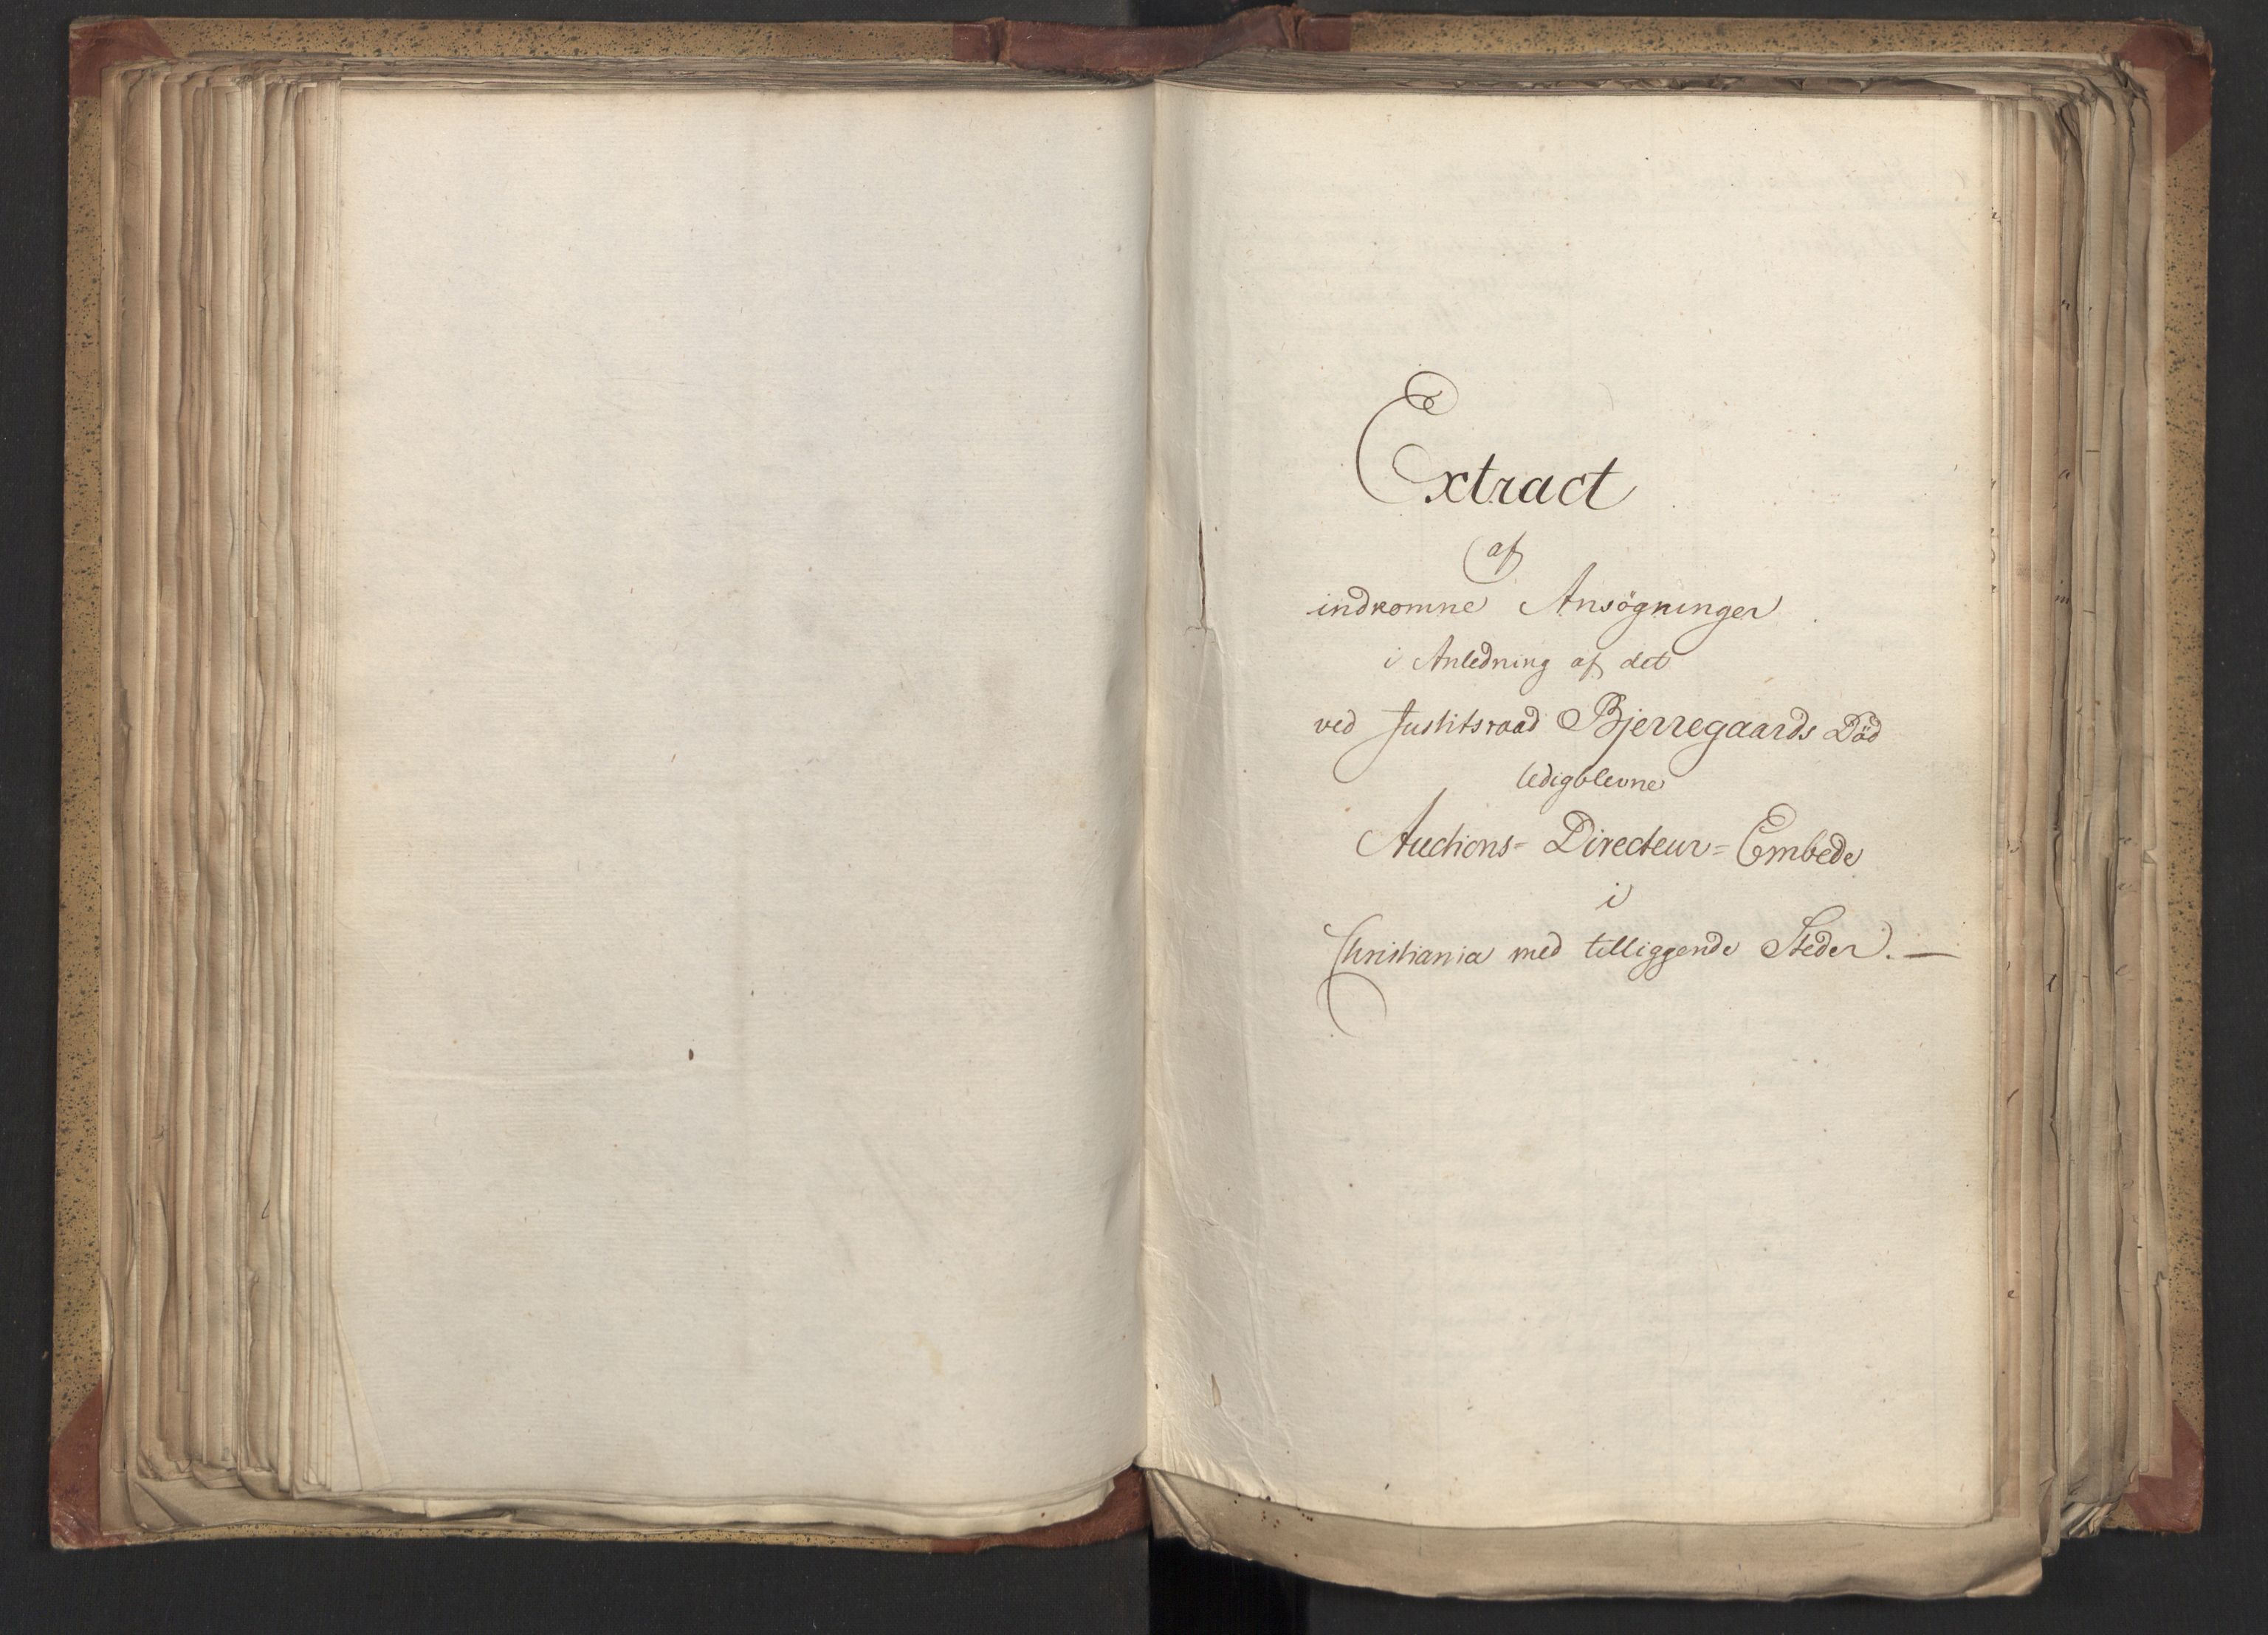 Extract
af
indkomne Ansögninger
i Anledning af det
ved Justitsraad Bjerregaards Död
ledigblevne
Auctions= Directeur= Embede
i
Christiania med tilliggende Steder. —